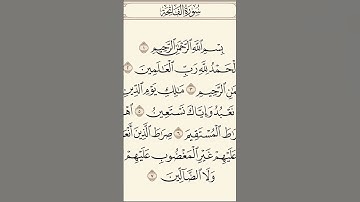 سُورَةُ الفَاتِحَةِ
بِسْمِ اللَّهِ الرَّحْمَٰنِ الرَّحِيمِ ١
لْحَمْدُ لِلَّهِ رَبِّ الْعَالَمِينَ ٢
مَٰنِ الرَّحِيمِ ٣ مَالِكِ يَوْمِ الدِّينِ
نَعْبُدُ وَإِيَّاكَ نَسْتَعِينُ ٥ اهْ
رَاطَ الْمُسْتَقِيمَ ٦ صِرَاطَ الَّذِينَ أَنْعَ
عَلَيْهِمْ غَيْرِ الْمَغْضُوبِ عَلَيْهِمْ
وَلَا الضَّالِّينَ ٧